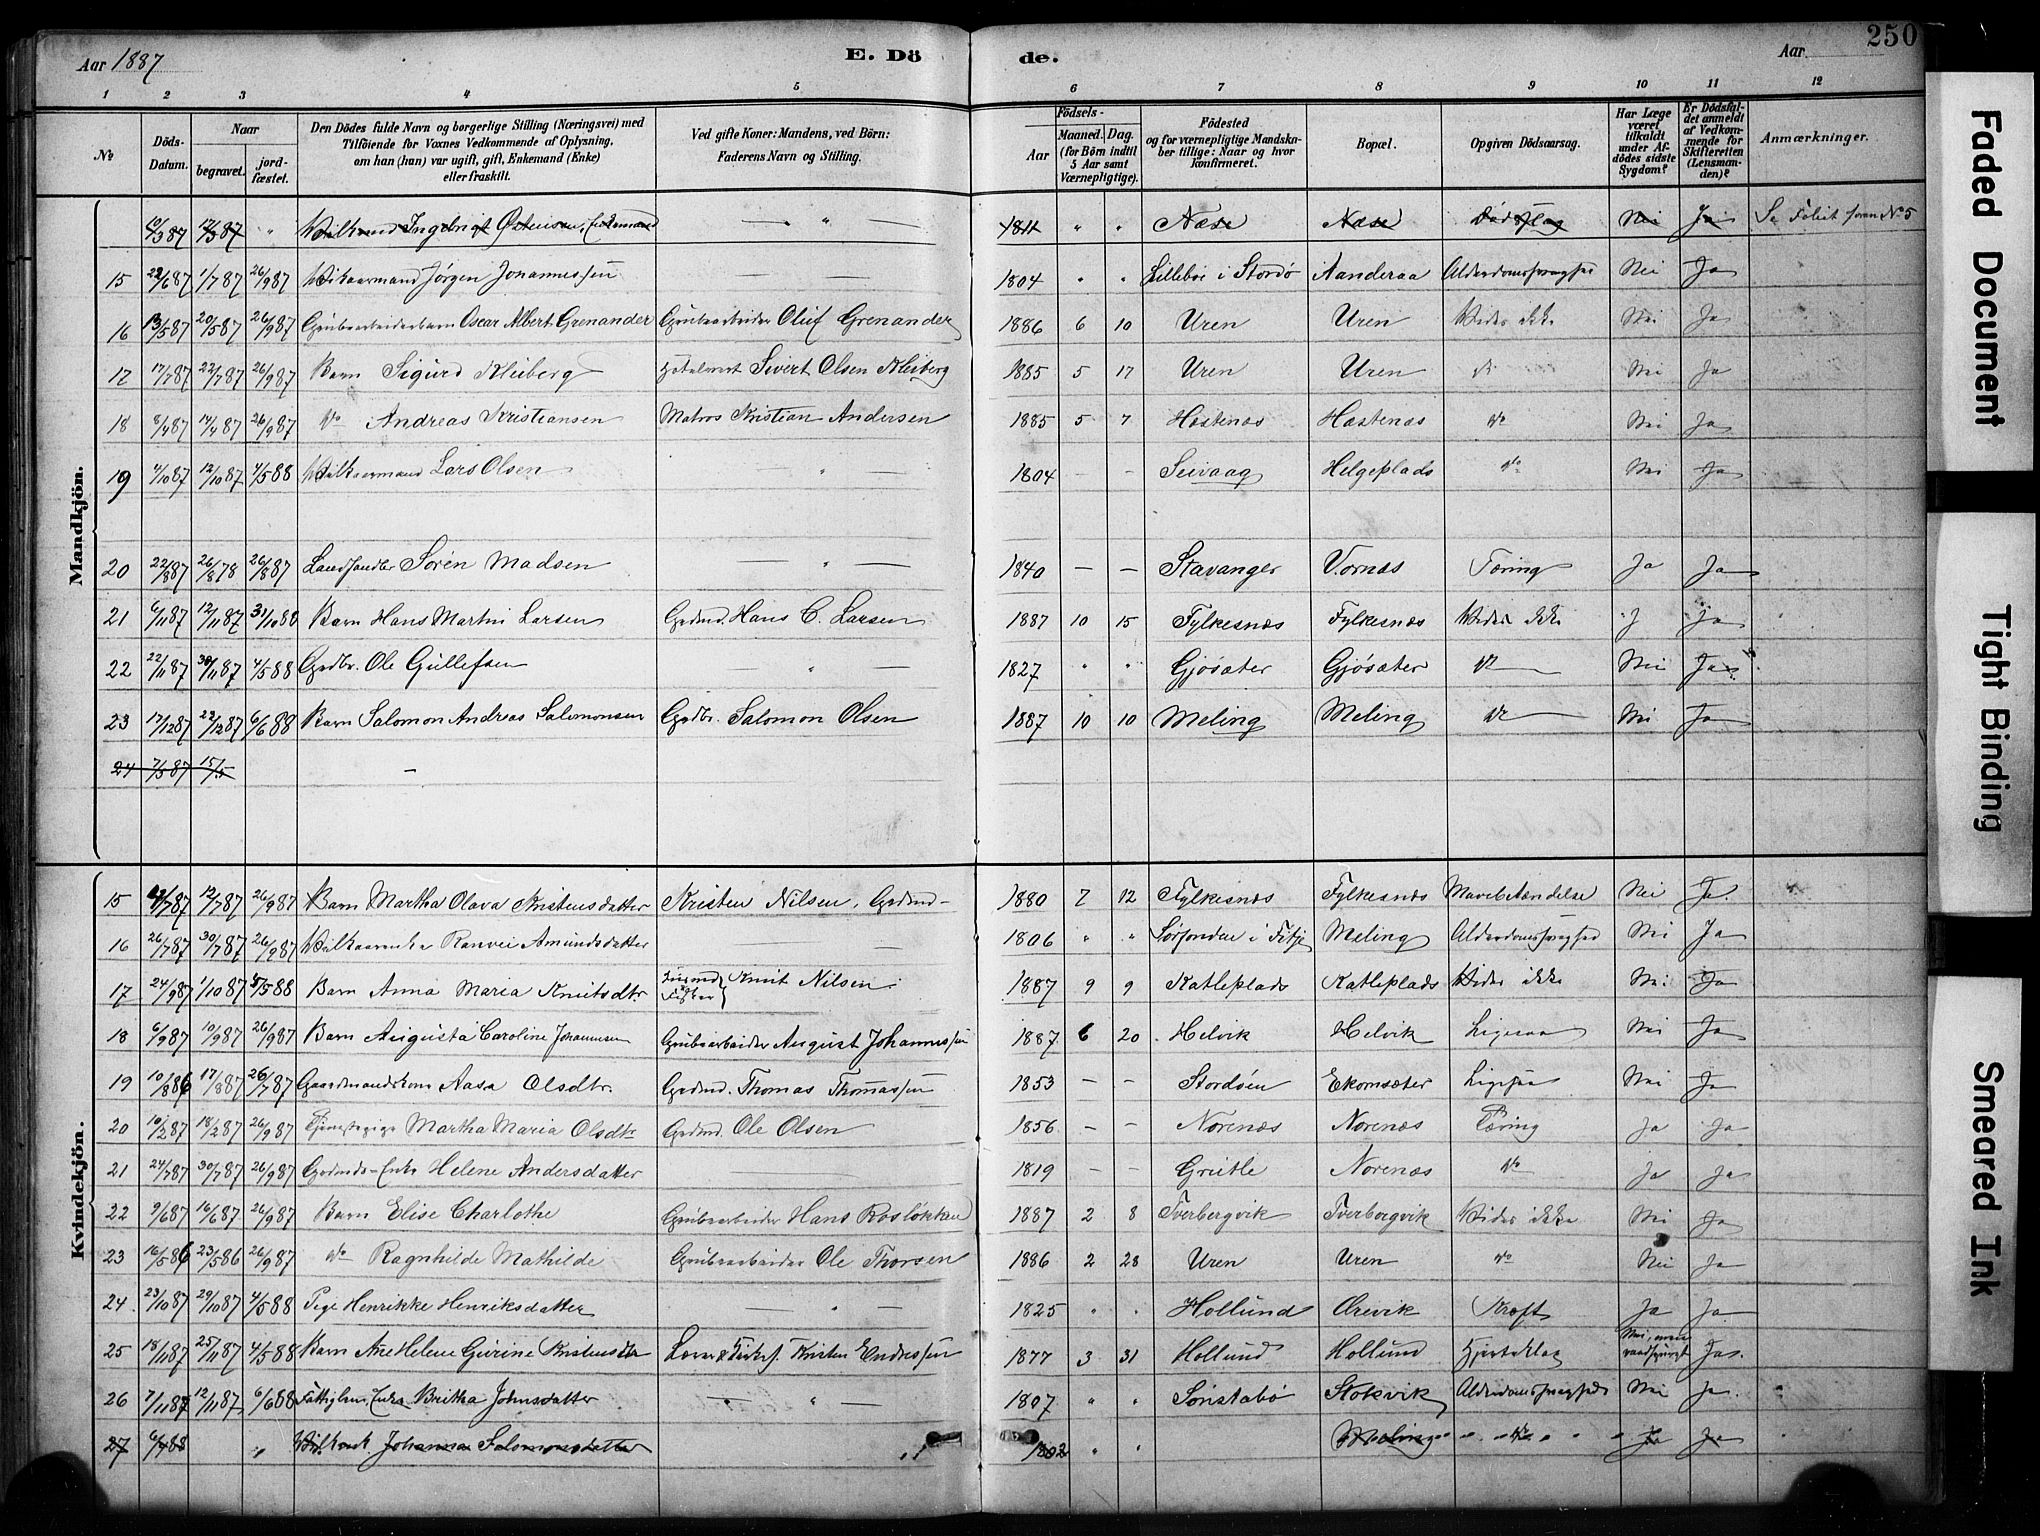 Aar 1887
E. Dö
de.
Aar
250
1 2 3 4 5 6 7 8 9 10 11 12
No
Döds-Datum.
Naar
begravet.
jord-fæstet.
Den Dödes fulde Navn og borgerlige Stilling (Næringsvei) med
Tilföiende for Voxnes Vedkommende af Oplysning,
om han (hun) var ugift, gift, Enkemand (Enke)
eller fraskilt.
Ved gifte Koner: Mandens, ved Börn:
Faderens Navn og Stilling.
Födsels-
Aar
Maaned. Dag.
(for Börn indtil
5 Aar samt
Værnepligtige).
Födested
og for værnepligtige Mandska-
ber tillige: Naar og hvor
konfirmeret.
Bopæl.
Opgiven Dödsaarsag.
Har Læge
været
tilkaldt
under Af-
dödes sidste
Sygdom?
Er Dödsfal-
det anmeldt
af Vedkom-
mende for
Skifteretten
(Lensman-
den)?
Anmærkninger.
Mandkjön.
10/3 87 17/3 87 " Ingebrigt Østensen, Enkemand — " — 1811 " " Næse Næse Nei Ja Se Foliet foran No 5
15 22/6 87 1/7 87 26/9 87 Jørgen Johannessen — — 1804 " " Lillebøe i Stordø Aanderaa Alderdomssvaghed Nei Ja
16 13/5 87 20/5 87 26/9 87 Grubearbeiderbarn Oscar Albert Grenander Grubearbeider Oluf Grenander 1886 6 10 Uren Uren Vides ikke Nei Ja
17 17/7 87 22/7 87 26/9 87 Barn Sigurd Kleiberg Sivert Olsen Kleiberg 1885 5 17 Uren Uren do Nei Ja
18 8/4 87 14/4 87 26/9 87 do Andreas Kristiansen Matros Kristian Andersen 1885 5 7 Hæstenæs Hæstenæs do Nei Ja
19 4/10 87 12/10 87 4/5 88 Vilkaarmand Lars Olsen " — 1804 — — Seivaag Helgeplads do Nei Ja
20 22/8 87 26/8 78 26/8 87 Landhandler Sören Madsen — " — 1840 — — Stavanger Vornæs Tæring Ja Ja
21 6/11 87 12/11 87 31/10 88 Barn Hans Martin Larsen Grdmd. Hans C. Larsen 1887 10 15 Fylkesnæs Fylkesnæs Vides ikke J Ja
22 22/11 87 30/11 87 4/5 88 Grdbr. Ole Gullefsen — " — 1827 " " Gjøsæter Gjøsæter do Nei Ja
23 17/12 87 22/12 87 6/6 88 Barn Salomon Andreas Salomonsen Grdbr. Salomon Olsen 1887 10 10 Meling Meling do Nei Ja
24 7/5 87 15/5 —
Kvindekjön.
15 4/7 87 12/7 87 26/9 87 Barn Martha Olava Kristensdatter Kristen Nilsen, Grdmd 1880 7 12 Fylkesnæs Fylkesnæs Mavebetændelse Nei Ja.
16 26/7 87 30/7 87 26/9 87 Vilkaarenke Ranvei Amundsdatter — — 1806 " " Sørfonden i Fitje Meling Alderdomssvaghed Nei Ja
17 24/9 87 1/10 87 4/5 88 Barn Anna Maria Knutsdtr Knut Nilsen 1887 9 9 Katleplads Katleplads Vides ikke Nei Ja
18 6/9 87 10/9 87 26/9 87 Barn Augusta Caroline Johannesen Grubearbeider August Johannessen 1887 6 20 Helvik Helvik Ligesaa Nei Ja
19 10/8 86 17/8 87 26/7 87 Gaardmandskone Aasa Olsdtr. Grdmd. Thomas Thomassen 1853 — — Stordøen Ekornsæter Ligesaa Nei Ja
20 10/2 87 18/2 87 26/9 87 Tjenestepige Martha Maria Olsdtr Grdmd. Ole Olsen 1856 — — Norenæs Norenæs Tæring Ja Ja
21 24/7 87 30/7 87 26/9 87 Grdmds-Enke Helene Andersdatter — 1819 — — Grutle Norenæs do Ja Ja
22 9/6 87 16/6 87 26/9 87 Barn Elise Charlothe Grubearbeider Hans Rosløkken 1887 2 8 Tverborgvik Tverborgvik Vides ikke Nei Ja
23 16/5 86 23/5 86 26/9 87 do Ragnhilde Mathilde Grubearbeider Ole Thorsen 1886 2 28 Uren Uren do Nei Ja
24 23/10 87 29/10 87 4/5 88 Pige Henrikke Henriksdatter — " — 1825 " " Hollund Orevik Kræft Ja Ja
25 18/11 87 25/11 87 4/5 88 Barn Ane Helene Gurine Kristensdtr Lærer & Kirkes. Kristen Endressen 1877 3 31 Hollund Hollund Hjerteslag Nei, men raadspurgt Ja.
26 7/11 87 12/11 87 6/6 88 Fattiglem, Enke Britha Johnsdatter — " — 1807 " " Sønstabø Stokvik Alderdomssvaghed Nei Ja.
27 6/7 88 " Johanna Salomonsdatter " 1802 " " Meling " do " Ja Ja
Faded Document
Tight Binding
Smeared Ink